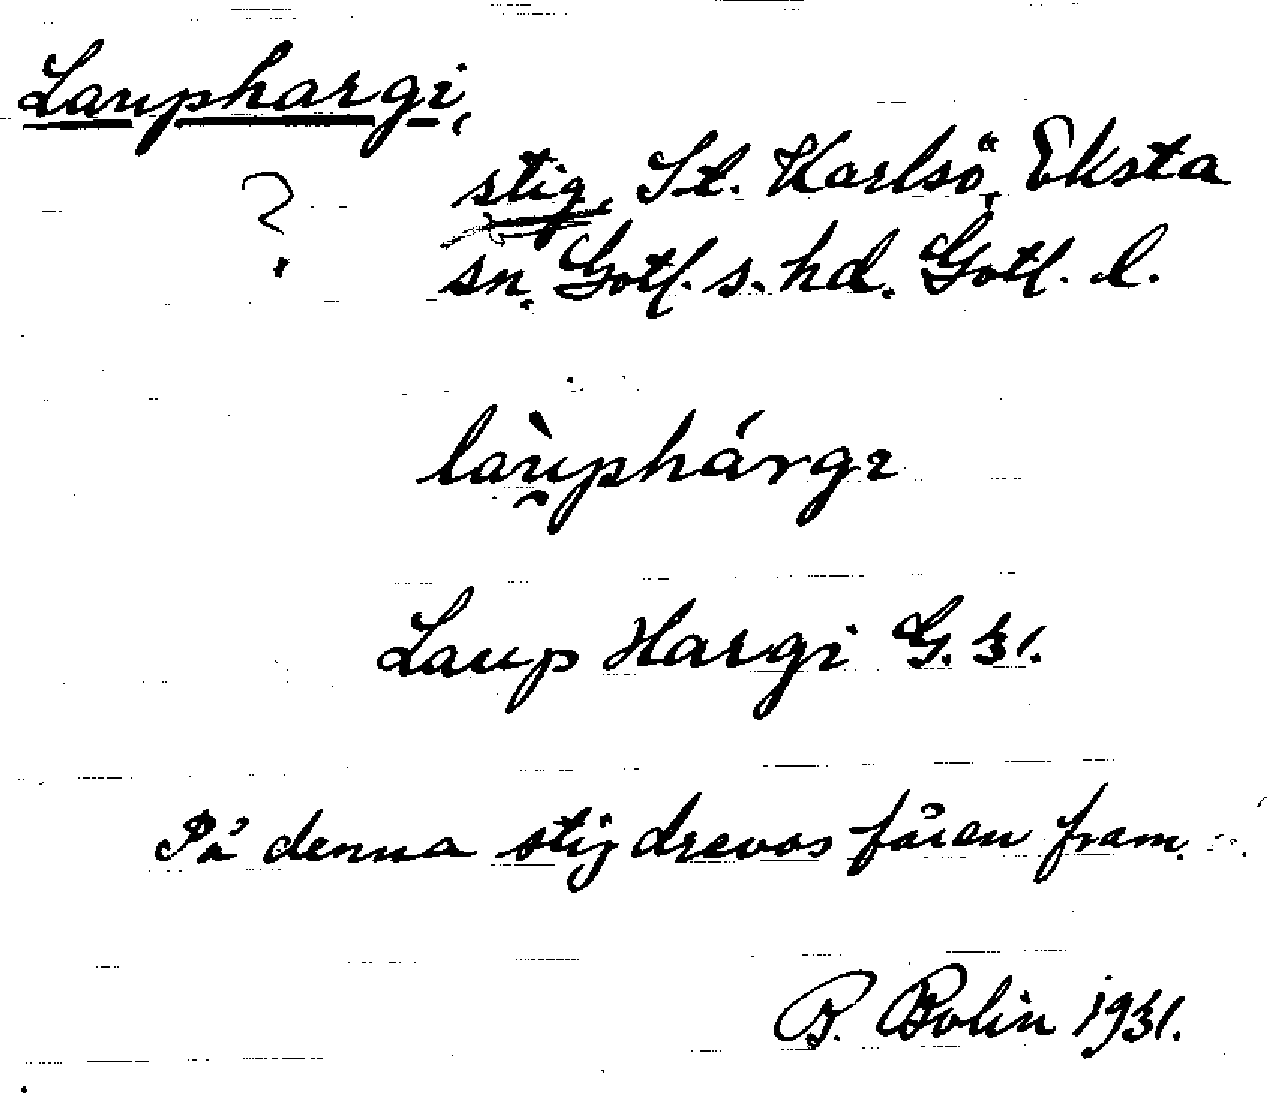 Lauphargi,
? stig, St. Karlsö, Eksta
sn. Gotl. s. hd. Gotl. l.
laù̯phárgɪ
Laup Hargi G. 31.
På denna stig drevos fåren fram.
B. Bolin 1931.